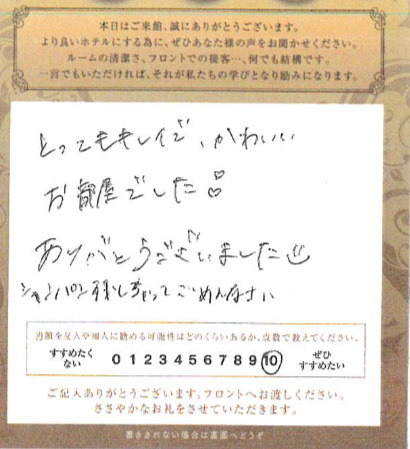 本日はご来館、誠にありがとうございます。
より良いホテルにする為に、ぜひあなた様の声をお聞かせください。
ルームの清潔さ、フロントでの接客…、何でも結構です。
一言でもいただければ、それが私たちの学びとなり励みになります。
とってもキレイで、かわいい
お部屋でした!!
ありがとうございました
シャンパン残しちゃってごめんなさい
当館を友人や知人に勧める可能性はどのくらいあるか、点数で教えてください。
すすめたくない 0 1 2 3 4 5 6 7 8 9 10 ぜひすすめたい
ご記入ありがとうございます。フロントへお渡しください。
ささやかなお礼をさせていただきます。
書ききれない場合は裏面へどうぞ